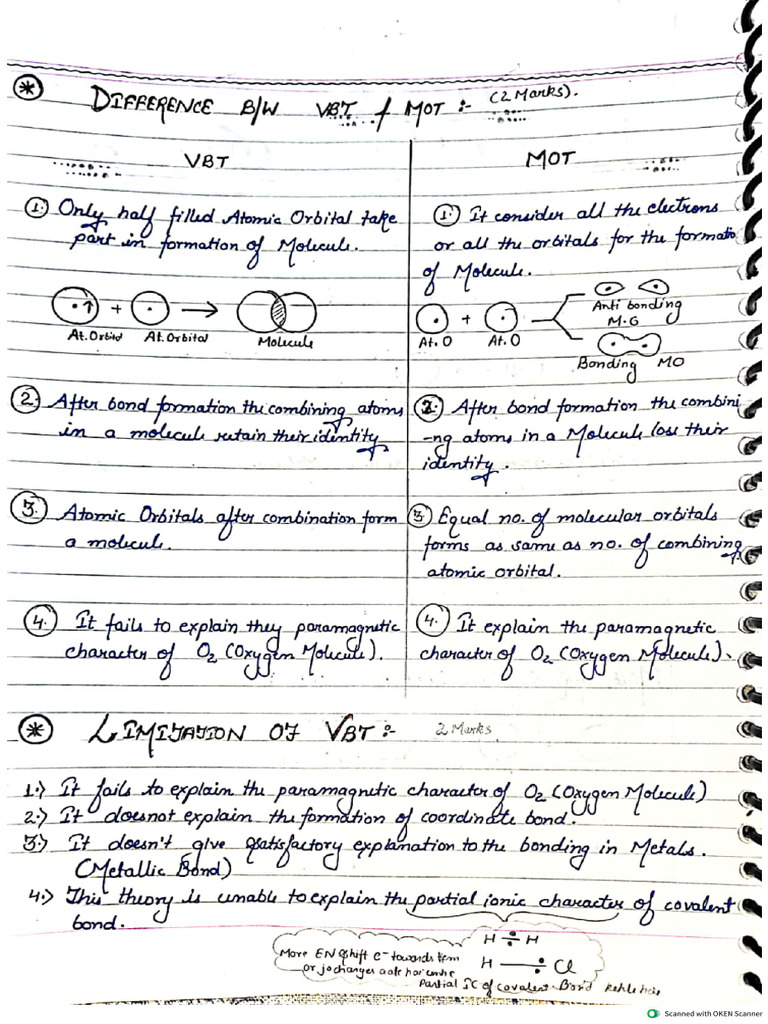 * DIFFERENCE B/W VBT & MOT :- (2 Marks).
VBT
MOT
1. Only half filled Atomic Orbital take
part in formation of Molecule.
At. Orbital At. Orbital Molecule
2. After bond formation the combining atoms
in a molecule retain their identity
3. Atomic Orbitals after combination form
a molecule.
4. It fails to explain they paramagnetic
character of O2 (Oxygen Molecule).
1. It consider all the electrons
or all the orbitals for the formatio
of Molecule.
Anti bonding
M.G
At. O + At. O
Bonding MO
2. After bond formation the combini
-ng atoms in a Molecule lose their
identity.
3. Equal no. of molecular orbitals
forms as same as no. of combining
atomic orbital.
4. It explain the paramagnetic
character of O2 (Oxygen Molecule).
* LIMITATION OF VBT :- 2 Marks
1.) It fails to explain the paramagnetic character of O2 (Oxygen Molecule)
2.) It doesnot explain the formation of coordinate bond.
3.) It doesn't give satisfactory explanation to the bonding in Metals.
(Metallic Bond)
4.) This theory is unable to explain the partial ionic character of covalent
bond.
H ÷ H
More EN shift e- towards them
H — Cl
Partial IC of covalent Bond
Scanned with OKEN Scanner